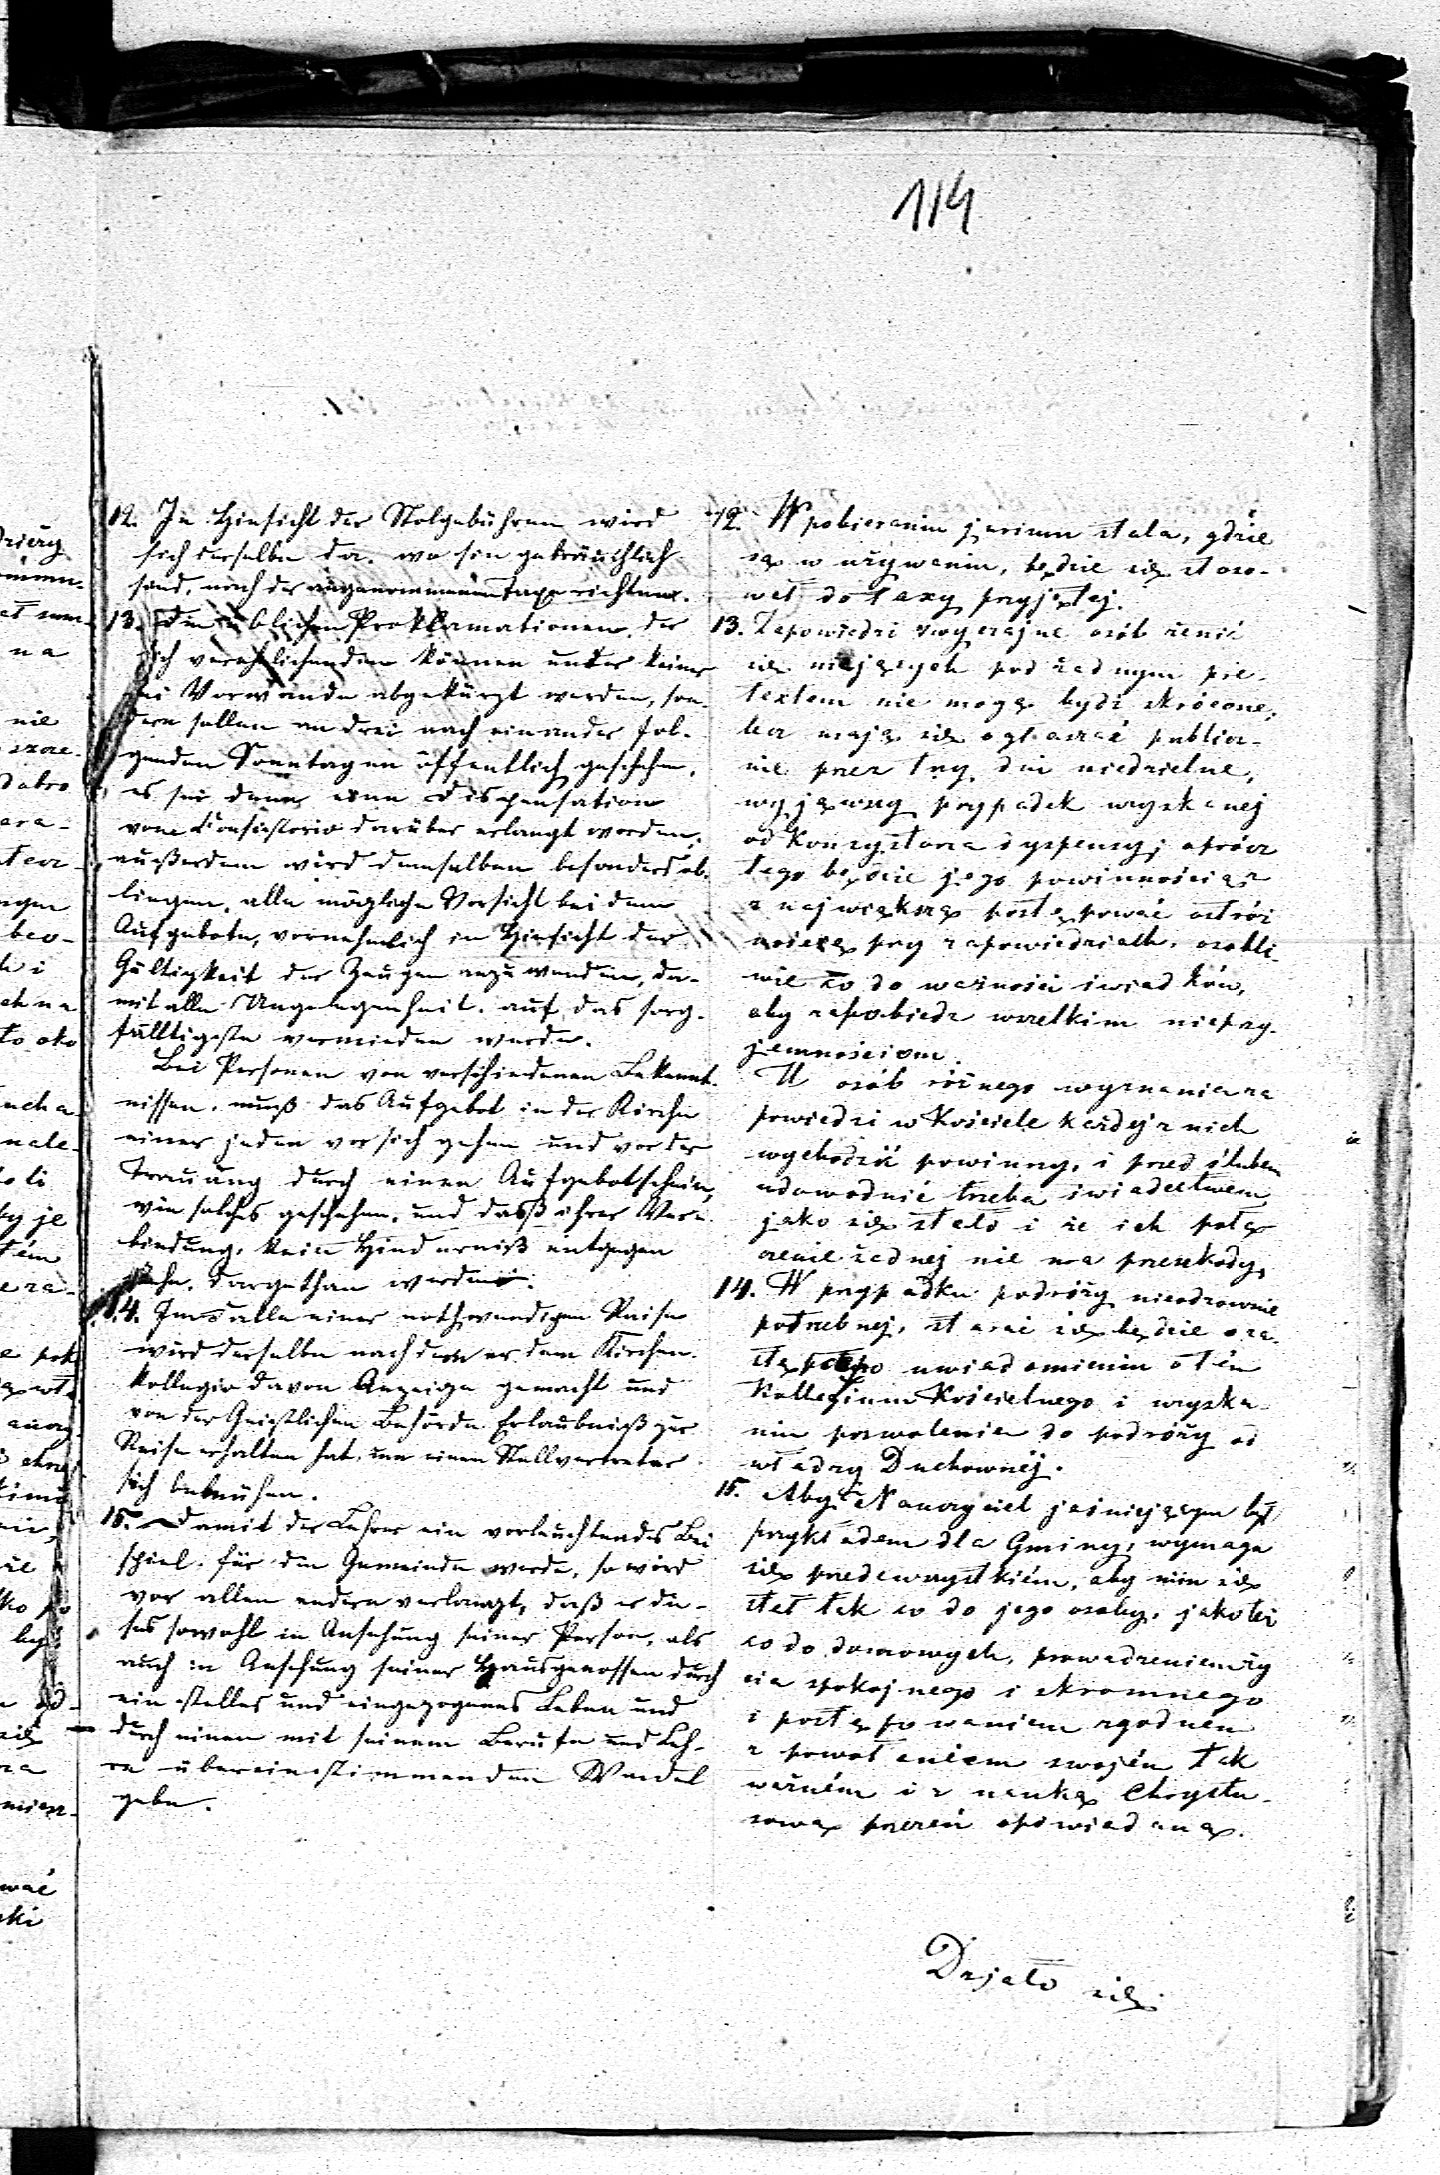 114
12. In Hinsicht der Stolgebühren wird
sich derselbe da, wo sie gebräuchlich
sind, nach der angenommenen Taxe richten.
13. Die üblichen Proklamationen der
sich verehlichenden können unter keiner
lei Vorwande abgekürzt werden, son-
dern sollen an drei nach einander fol-
genden Sonntagen öffentlich geschehen,
es sei denn eine Dispensation
vom Consistorio darüber erlangt worden;
außerdem wird demselben besonders ob-
liegen, alle mögliche Vorsicht bei dem
Aufgebote, vornehmlich in Hinsicht der
Gültigkeit der Zeugen anzuwenden, da-
mit alle Ungelegenheit auf das sorg-
fälltigste vermieden werde.
Bei Personen von verschiedenen Bekennt-
nissen, muß das Aufgebot in der Kirche
eines jeden vor sich gehen und vor der
Trauung durch einen Aufgebotschein,
wie solches geschehen, und dasß ihrer Ver-
bindung, kein Hinderniß entgegen
stehe, dargethan werden.
14. Im Falle einer nothwendigen Reise
wird derselbe nachdem er dem Kirchen-
kollegio davon Anzeige gemacht und
von der Geistlichen Behörde Erlaubniß zur
Reise erhalten hat, um einen Stellvertreter
sich bemühen.
15. Damit der Lehrer ein vorleuchtendes Bei
spiel für die Gemeinde werde, so wird
vor allen andern verlangt, daß er die-
ses sowohl in Ansehung seiner Person, als
auch in Ansehung seiner Hausgenossen durch
ein stilles und eingezogenes Leben und
durch einen mit seinem Berufe und Leh-
re übereinstimmenden Wandel
gebe.
12. W pobieraniu jurium stola, gdzie
są w używaniu, będzie się stoso-
wał do taxy przyjętej.
13. Zapowiedzi zwyczajne osób żenić
się mających pod żadnym pre-
textem nie mogą bydź skrócone,
lecz mają się ogłaszać publicz-
nie przez trzy dni niedzielne,
wyjąwszy przypadek wyskanej
od Konsystorza dyspensy; oprócz
tego będzie jego powinnością
z największą postępować ostróż
nością przy zapowiedziach, osobli-
wie co do ważności świadków,
aby zapobiedz wszelkim nieprzy-
jemnościom.
U osób różnego wyznania za
powiedzi w Kościele każdej z nich
wychodzić powinny, i przed ślubem
udowodnić trzeba świadectwem
jako się stało i że ich połą
czenie żadnej nie ma przeszkody.
14. W przypadku podróży nieodzownie
potrzebnej, starać się będzie o za
stępcę po uwiadomieniu o tém
Kollegium Kościelnego i wyska-
niu pozwolenia do podróży od
władzy Duchownéj.
15. Aby Nauczyciel jaśniejącym był
przykładem dla Gminy, wymaga
się przedewszystkiém, aby nim się
stał tak co do jego osoby, jakoteż
co do domowych, prowadzeniem ży
cia spokojnego i skromnego
i postępowaniem zgodnem
z powołaniem swojém tak
ważném i z nauką Chrystu-
sową przezeń opowiadaną.
Działo się